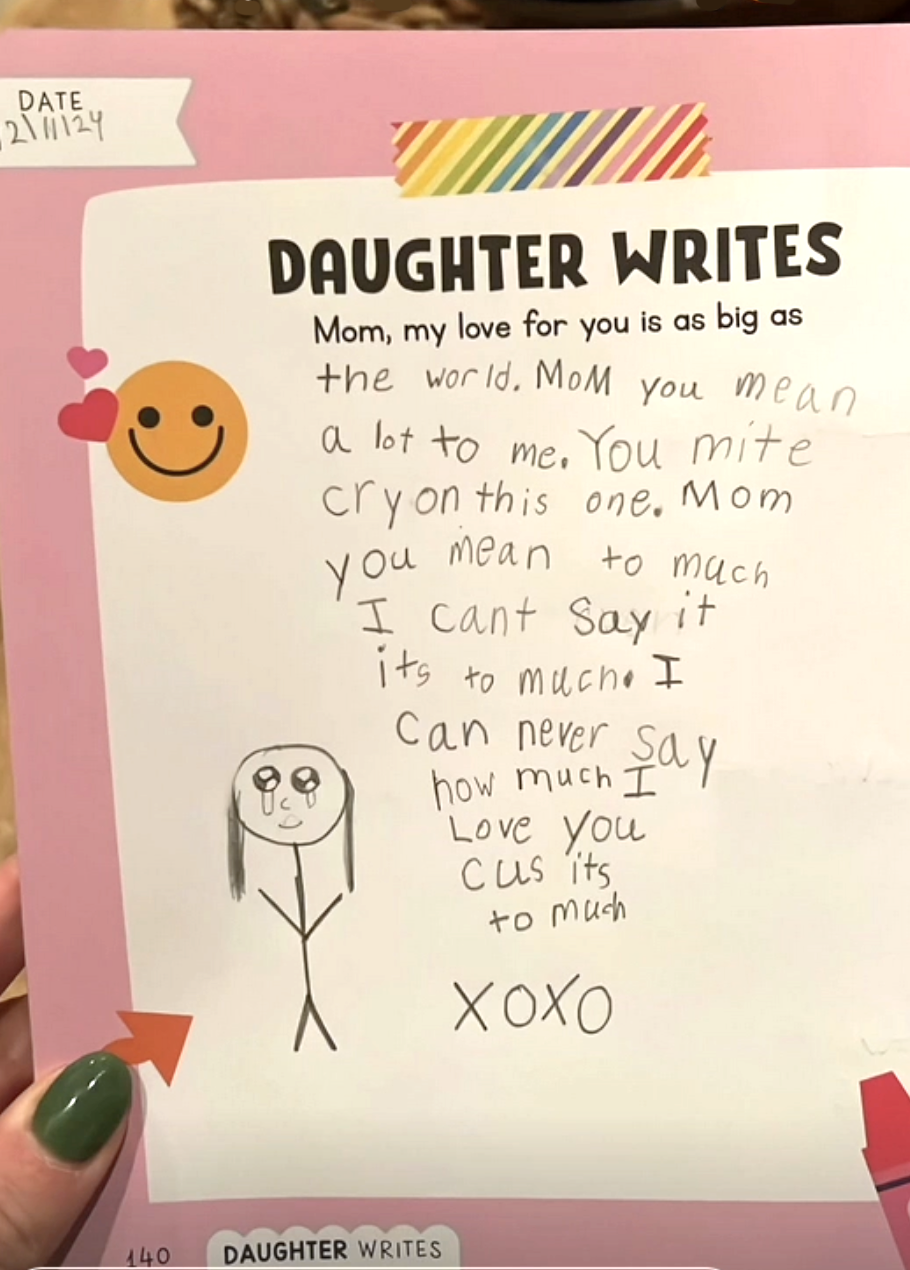 DATE
2\11\24
DAUGHTER WRITES
Mom, my love for you is as big as
the world. MoM you mean
a lot to me. You mite
cry on this one. Mom
you mean to much
I cant Say it
its to much. I
can never say
how much I
Love you
cus its
to much
XOXO
140
DAUGHTER WRITES